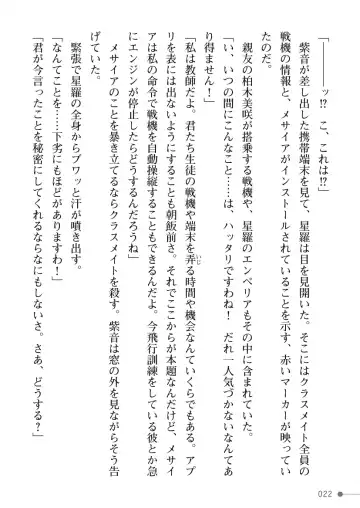 「――――ッ!?　こ、これは!?」
紫音が差し出した携帯端末を見て、星羅は目を見開いた。そこにはクラスメイト全員の
戦機の情報と、メサイアがインストールされていることを示す、赤いマーカーが映ってい
たのだ。
親友の柏木美咲が搭乗する戦機や、星羅のエンペリアもその中に含まれていた。
「い、いつの間にこんなこと……は、ハッタリですわね!　だれ一人気づかないなんてあ
り得ません!」
「私は教師だよ。君たち生徒の戦機や端末を弄る時間や機会なんていくらでもある。アプ
リを表には出ないようにすることも朝飯前さ。それでここからが本題なんだけど、メサイ
アは私の命令で戦機を自動操縦することもできるんだよ。今飛行訓練をしている彼とか急
にエンジンが停止したらどうするんだろうね」
メサイアのことを暴き立てるならクラスメイトを殺す。紫音は窓の外を見ながらそう告
げていた。
緊張で星羅の全身からブワッと汗が噴き出す。
「なんてことを……下劣にもほどがありますわ!」
「君が今言ったことを秘密にしてくれるならなにもしないさ。さあ、どうする?」
いじ
022